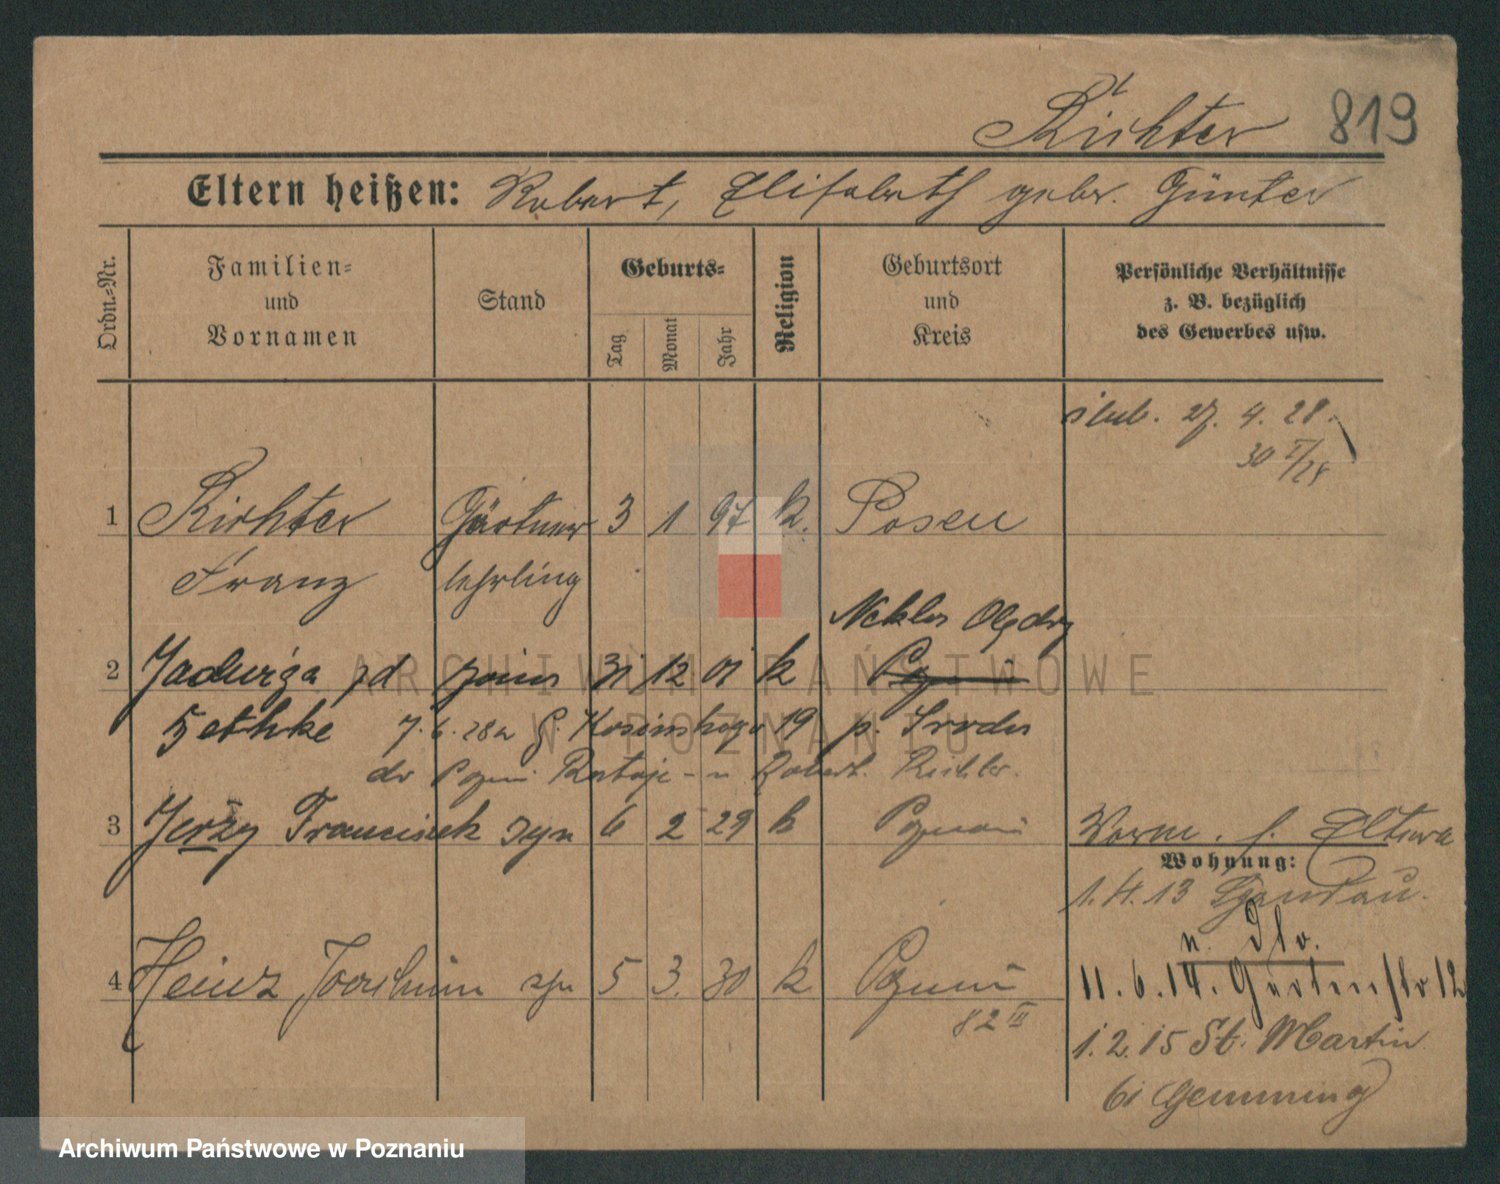 Richter 819
Eltern heißen: Robert, Elisabeth gebr. Günter
Ordn.-Nr.
Familien- und Vornamen
Stand
Geburts-
Tag
Monat
Jahr
Religion
Geburtsort und Kreis
Persönliche Verhältnisse z. B. bezüglich des Gewerbes usw.
ślub. 27. 4. 28.
30 I/28
1 Richter Gärtner 3 1 97 k. Posen
Franz lehrling
Nekla
2 Jadwiga zd 31 12 01 k
Zethke 7. 6. 28 19 p. Środa
Rataje Robert. Richter.
3 Jerzy Franciszek syn 6 2 29 k Poznań
Wohnung:
1. 4. 13
4 Heinz Joachim syn 5 3. 30 k Poznań
11. 6. 14. Gartenstr 12
82 III
1. 2. 15 St. Martin
bi Gemming
ARCHIWUM PAŃSTWOWE
W POZNANIU
Archiwum Państwowe w Poznaniu